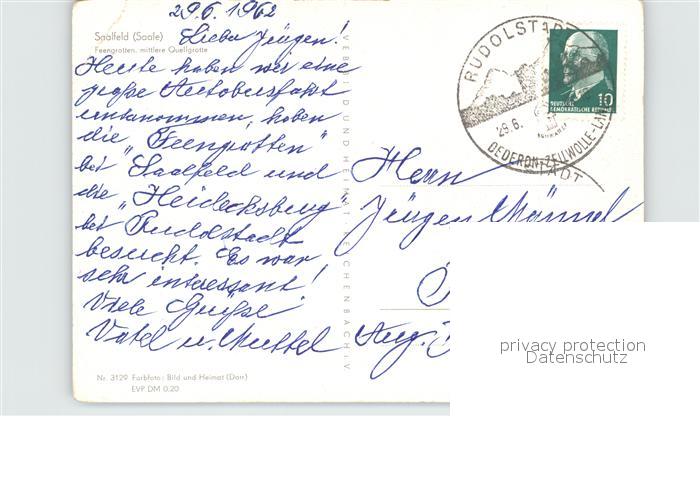 29.6.1962
Saalfeld (Saale)
Feengrotten, mittlere Quellgrotte
Lieber Jürgen!
Heute haben wir eine
große Autobusfahrt
unternommen, haben
die "Feengrotten"
bei Saalfeld und
die "Heidecksburg"
bei Rudolstadt
besucht. Es war
sehr interessant!
Viele Grüße
Vater u. Mutter
Nr. 3129 Farbfoto: Bild und Heimat (Darr)
EVP DM 0,20
VEB BILD UND HEIMAT REICHENBACH I. V.
RUDOLSTADT
29.6.
DEDERON-ZELLWOLLE-
STADT
DEUTSCHE
DEMOKRATISCHE
10
Herrn
Jürgen
Aug.
privacy protection
Datenschutz